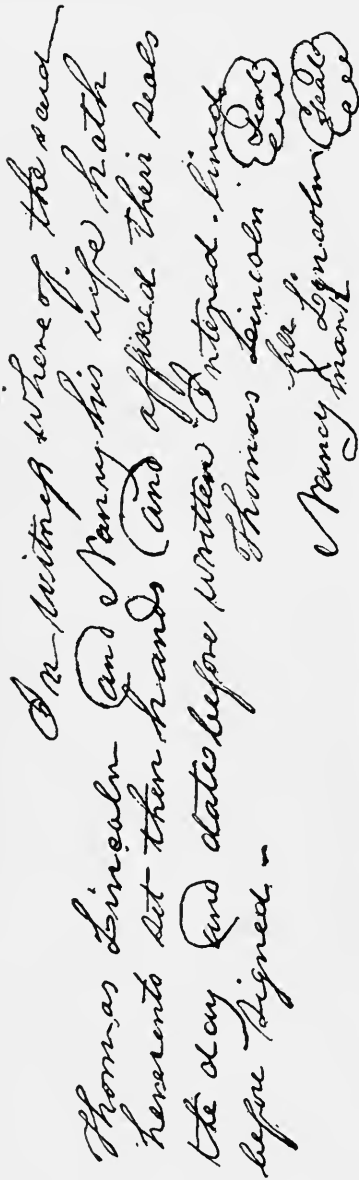 In witness where of the said
Thomas Lincoln and Nancy his wife hath
hereunto set their hands and affixed their seals
the day and date before written Entered. lined
before signed. ~
Thomas Lincoln Seal
her
Nancy X Lincoln Seal
mark